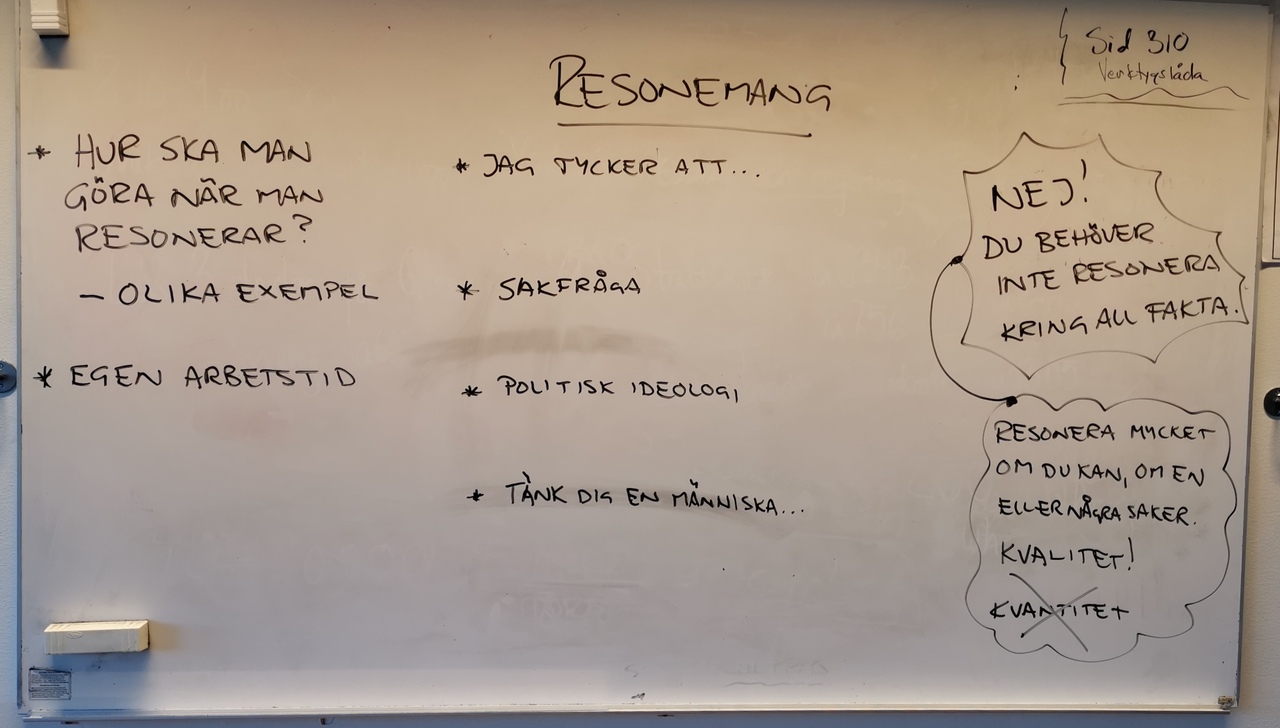 RESONEMANG
* HUR SKA MAN
GÖRA NÄR MAN
RESONERAR?
– OLIKA EXEMPEL
* EGEN ARBETSTID
* JAG TYCKER ATT...
* SAKFRÅGA
* POLITISK IDEOLOGI
* TÄNK DIG EN MÄNNISKA...
Sid 310
Verktygslåda
NEJ!
DU BEHÖVER
INTE RESONERA
KRING ALL FAKTA.
RESONERA MYCKET
OM DU KAN, OM EN
ELLER NÅGRA SAKER.
KVALITET!
KVANTITET